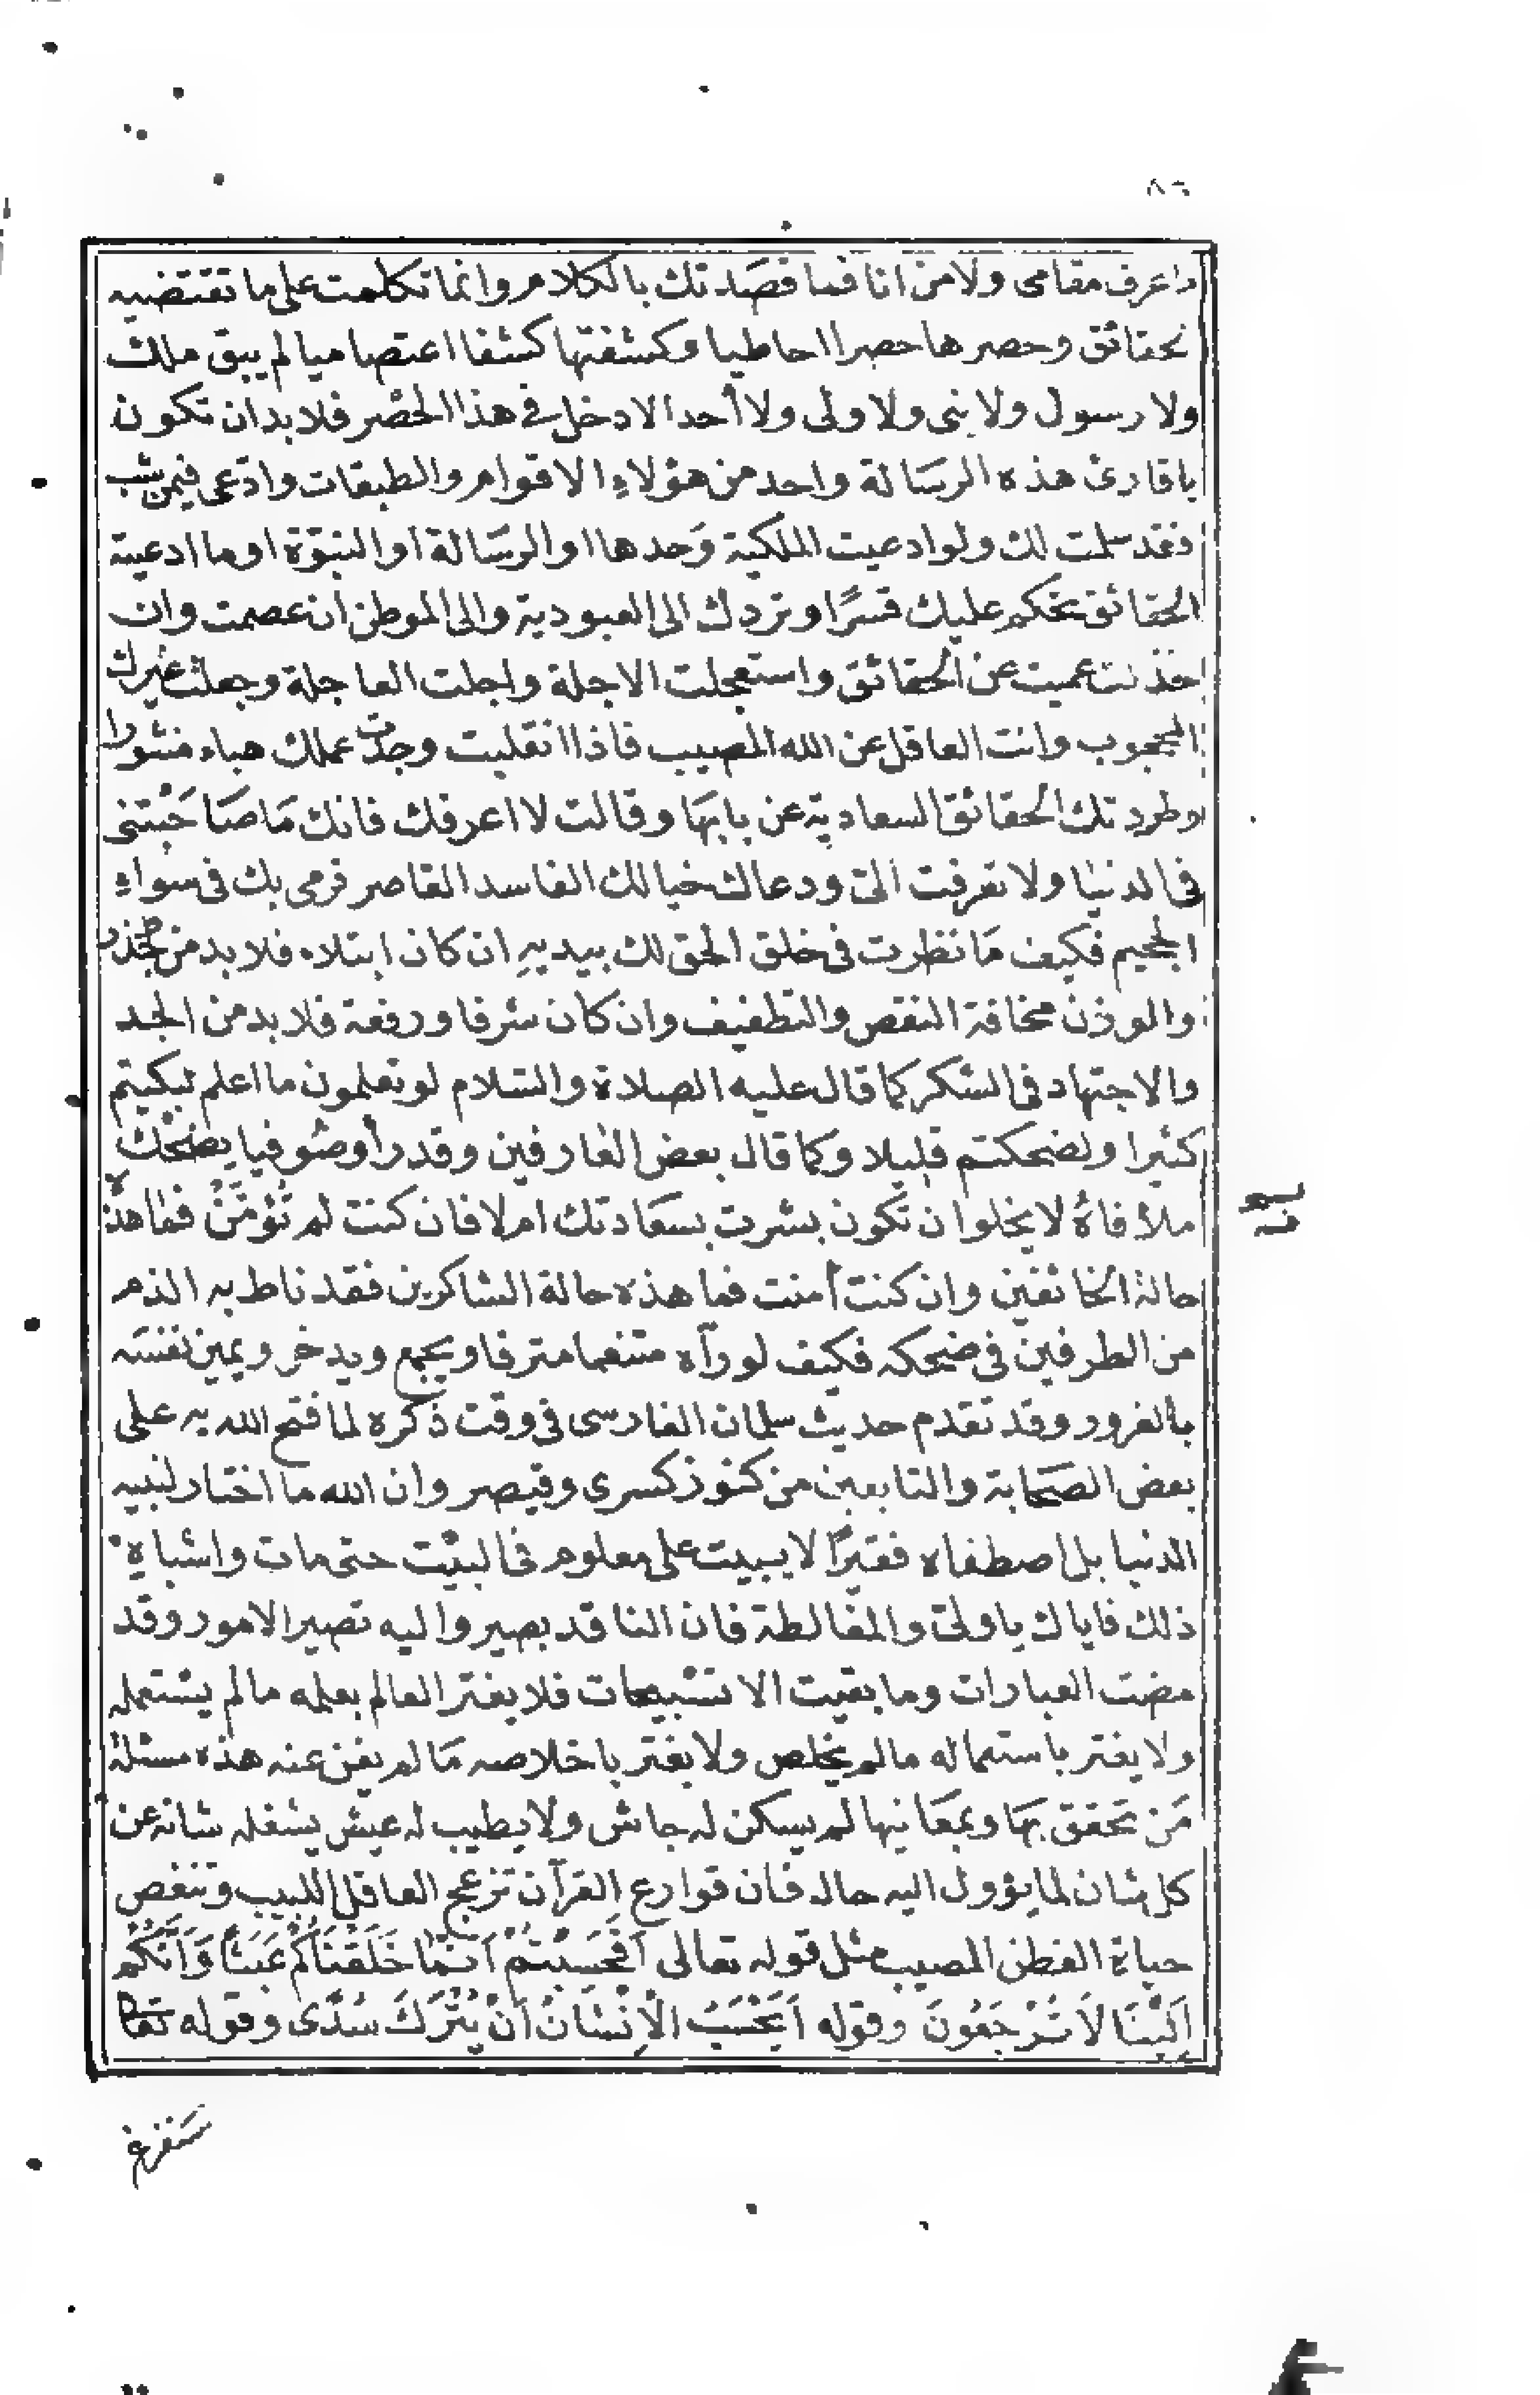 ٨٦
ما عرف مقامى ولا من انا فما قصَدتك بالكلام وانما تكلمت على ما تقتضيه
لحقائق وحصرها حصرا احاطيا وكشفتها كشفا اعتصاميا لم يبق ملك
ولا رسول ولا نبى ولا ولى ولا أحد الا دخل فى هذا الحصْر فلا بد ان تكون
ياقارئ هذه الرسَالة واحد من هؤلاءِ الاقوام والطبقات وادّعى فيمن شئت
فقد سلمت لك ولو ادعيت الملكية وَحدها او الرسَالة او النبوّة او ما ادعيته
الحقائق تحكم عليك قسرًا وتردك الى العبودية والى الموطن ان عصمت وان
خذلت عميت عن الحقائق واستعجلت الاجلة واجلت العاجلة وجعلت غيرك
المحجوب وانت العاقل عن الله المصيب فاذا انقلبت وجدت عملك هباء منثورا
وطردتك الحقائق السعادية عن بابهَا وقالت لا اعرفك فانك مَا صَاحَبْتنى
فى الدنيَا ولا تعرفت الىّ ودعاك خيالك الفاسد القاصر فرمى بك فى سواءِ
الجحيم فكيف مَا نظرت فى خلق الحق لك بيديهِ ان كان ابتلاء فلا بد من حذر
والوزن مخافة النقص والتطفيف وان كان شرفا ورفعة فلا بد من الجد
والاجتهاد فى الشكر كما قال عليه الصلاة والسّلام لو تعلمون ما اعلم لبكيتم
كثيرا ولضحكتم قليلا وكما قال بعض العَارفين وقد رأو صُوفيا يضحك
ملأ فاهُ لا يخلو ان تكون بشرت بسعَادتك ام لا فان كنت لم تؤمَّنْ فما هذه
حالة الخائفين وان كنت أمنت فما هذه حالة الشاكرين فقد ناط به الذم
من الطرفين فى ضحكه فكيف لو رآه متنعما مترفا ويجمع ويدخر ويمين نفسَه
بالغرور وقد تقدم حديث سلمان الفارسى فى وقت ذكره لما فتح الله به على
بعض الصحَابة والتابعين من كنوز كسرى وقيصر وان الله ما اختار لنبيه
الدنيا بل اصطفاه فقيرًا لا يبيت على معلوم فى البيْت حتى مات واشباه
ذلك فاياك ياولىّ والمغالطة فان الناقد بصير واليه تصير الامور وقد
مضت العبارات وما بقيت الا تسبيحات فلا يغتر العالم بعلمه ما لم يستعمله
ولا يغتر باستعماله ما لم يخلص ولا يغتر باخلاصه مَا لم يفن عنه هذه مسئلة
مَن تحقق بهَا وبمعَانيها لم يسكن له جاش ولا يطيب له عيش يشغله شانه عن
كل شان لما يؤول اليه حاله فان قوارع القرآن تزعج العاقل اللبيب وتنغص
حياة الفطن المصيب مثل قوله تعالى اَفَحَسِبْتُمْ اَنَّمَا خَلَقْنَاكُمْ عَبَثًا وَاَنَّكُمْ
اِلَيْنَا لاَ تُرْجَعُونَ وقوله اَيَحْسَبُ الْاِنْسَانُ اَنْ يُتْرَكَ سُدًى وقوله تعا
سنفرغ